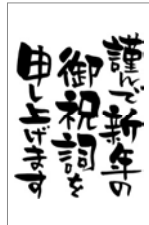 謹んで新年の
御祝詞を
申し上げます